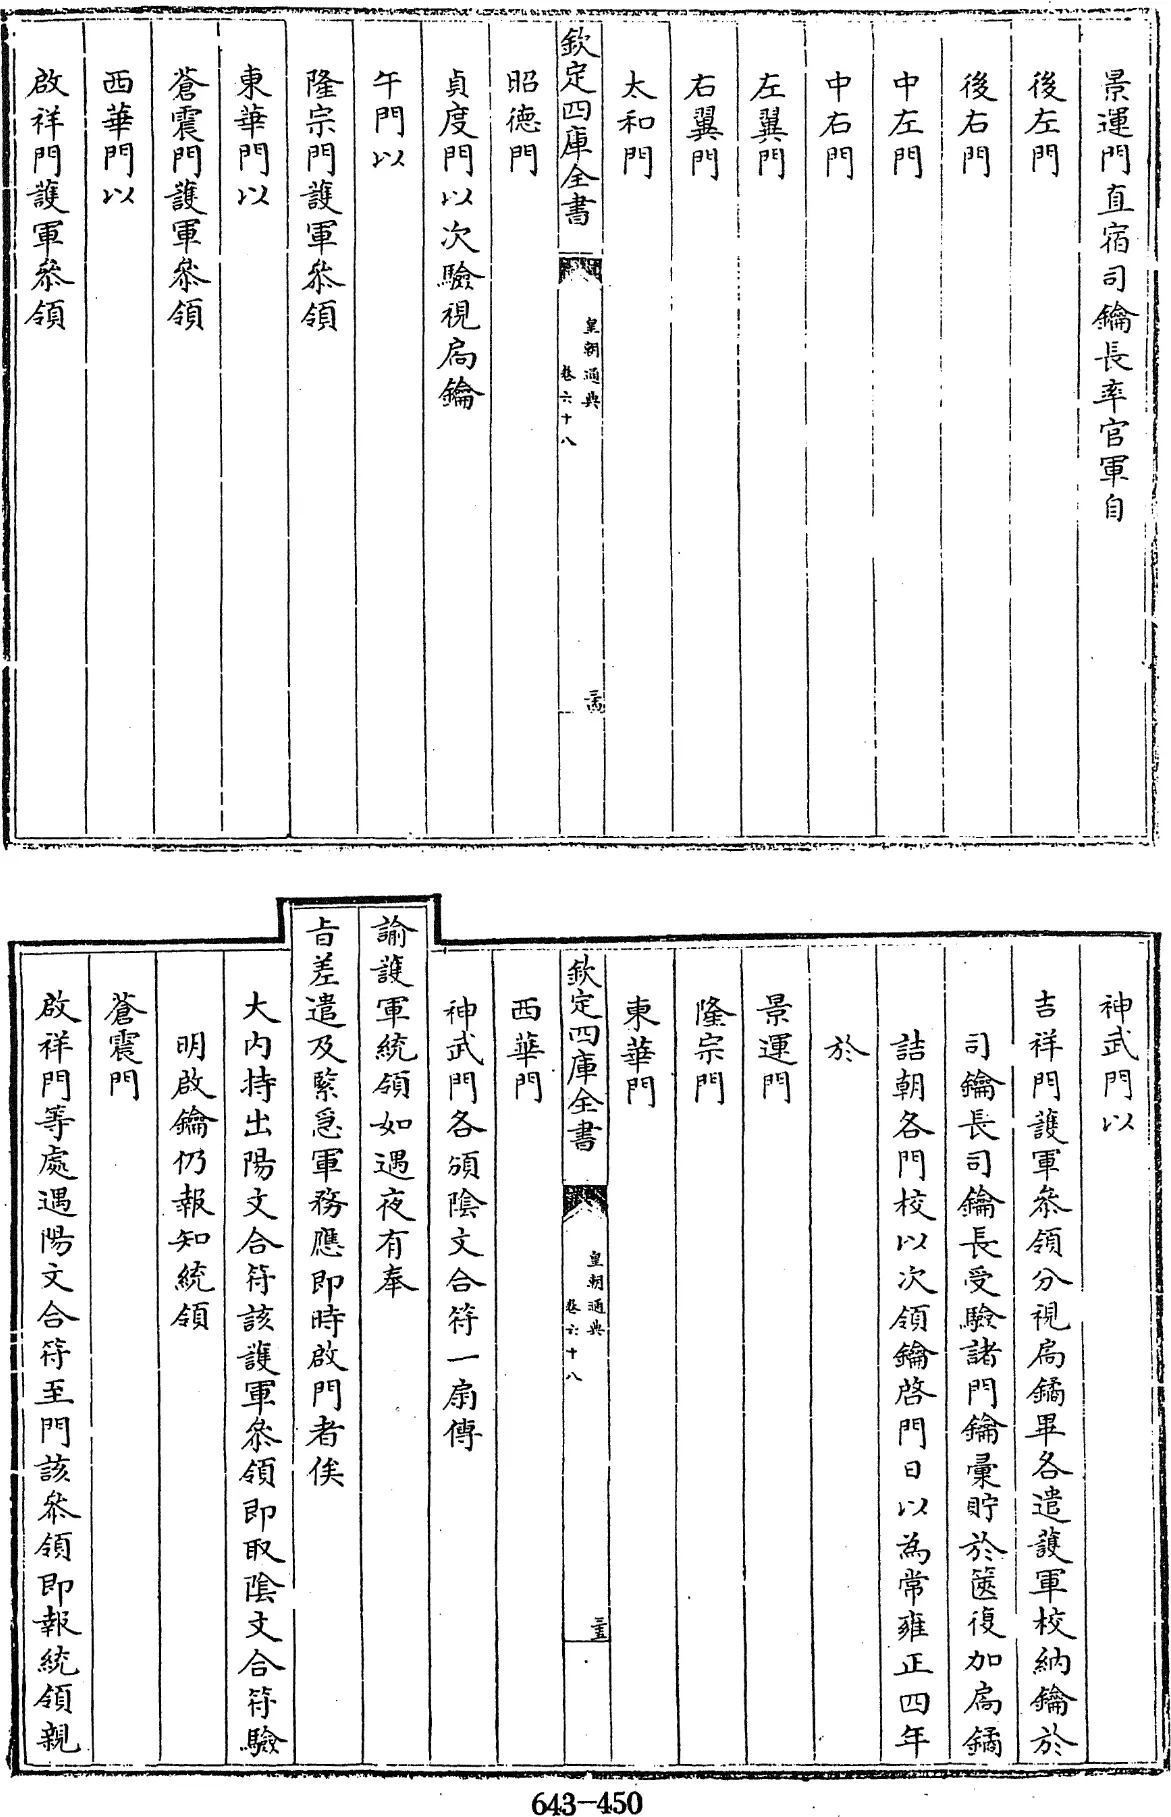 景運門直宿司鑰長率官軍自
後左門
後右門
中左門
中右門
左翼門
右翼門
太和門
欽定四庫全書
皇朝通典
卷六十八
三十四
昭德門
貞度門以次驗視扃鑰
午門以
隆宗門護軍叅領
東華門以
蒼震門護軍叅領
西華門以
啟祥門護軍叅領
神武門以
吉祥門護軍叅領分視扃鐍畢各遣護軍校納鑰於
司鑰長司鑰長受驗諸門鑰彚貯於篋復加扃鐍
詰朝各門校以次領鑰啓門日以為常雍正四年
於
景運門
隆宗門
東華門
欽定四庫全書
皇朝通典
卷六十八
三十五
西華門
神武門各頒陰文合符一扇傳
諭護軍統領如遇夜有奉
旨差遣及緊急軍務應即時啟門者俟
大內持出陽文合符該護軍叅領即取陰文合符驗
明啟鑰仍報知統領
蒼震門
啟祥門等處遇陽文合符至門該叅領即報統領親
643-450